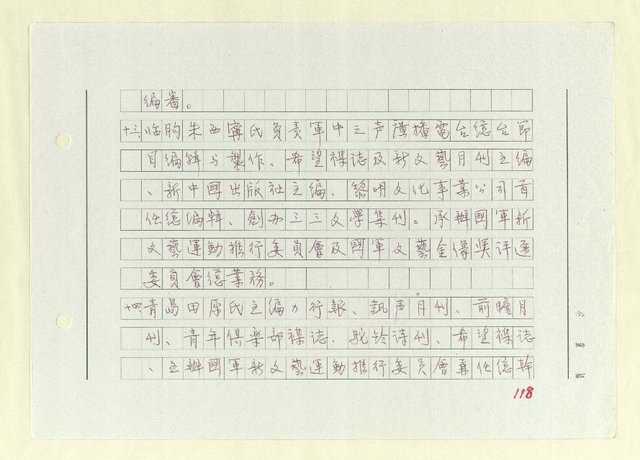 編審。
十三、臨朐朱西甯氏負責軍中之声廣播電台總台節
目編輯与製作、希望襍誌及新文藝月刊主編
、新中國出版社主編、黎明文化事業公司首
任總編輯、創办三三文學集刊。承辦國軍新
文藝運動推行委員會及國軍文藝金像奖評選
委員會總業務。
十四、青島田原氏主編力行報、凱声月刊、前瞻月
刊、青年俱樂部襍誌、駝鈴詩刊、希望襍誌
、主辦國軍新文藝運動推行委員會兼任總幹
118